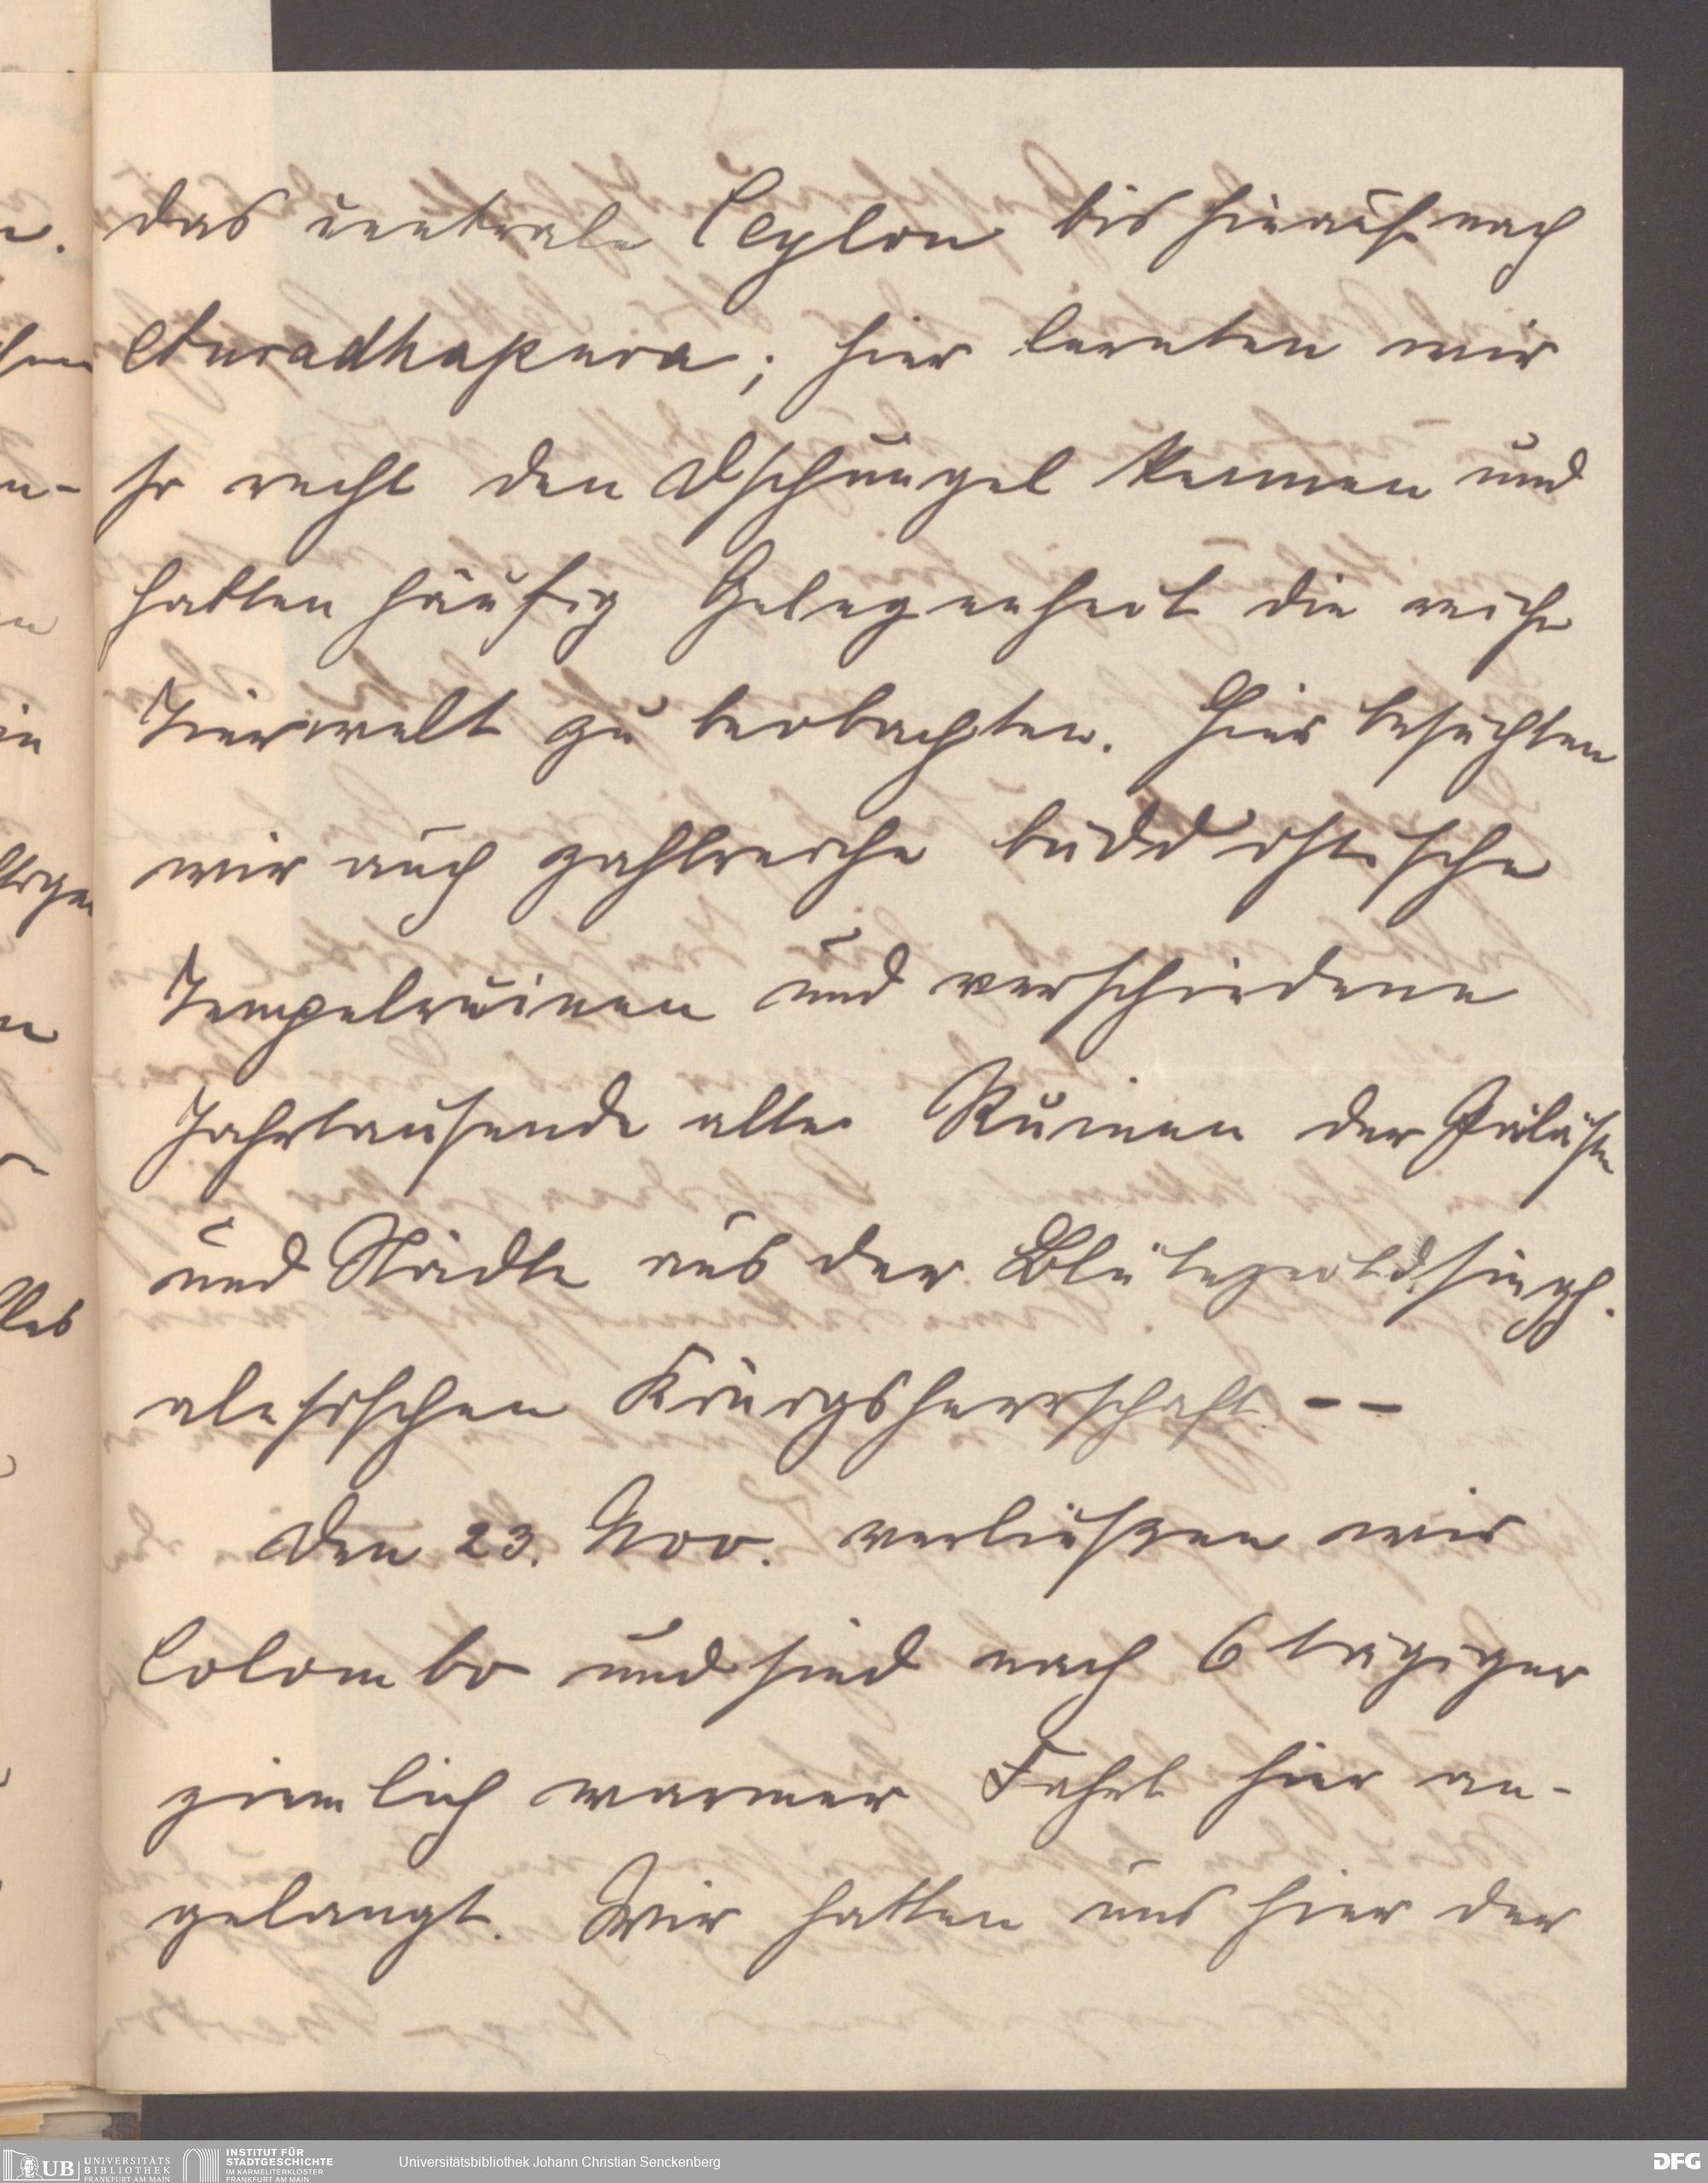 das centrale Ceylon bis hinauf nach
Anuradhapura; hier lernten wir
so recht den Dschungel kennen und
hatten häufig Gelegenheit die reiche
Tierwelt zu beobachten. Hier besuchten
wir auch zahlreiche buddistische
Tempelruinen und verschiedene
Jahrtausende alte Ruinen der Paläste
und Städte aus der Blütezeit d. singh.
alesischen Königsherrschaft. --
Den 23. Nov. verließen wir
Colombo und sind nach 6 tägiger
ziemlich warmer Fahrt hier an-
gelangt. Wir hatten uns hier der
UB UNIVERSITÄTS BIBLIOTHEK FRANKFURT AM MAIN
INSTITUT FÜR STADTGESCHICHTE IM KARMELITERKLOSTER FRANKFURT AM MAIN
Universitätsbibliothek Johann Christian Senckenberg
DFG